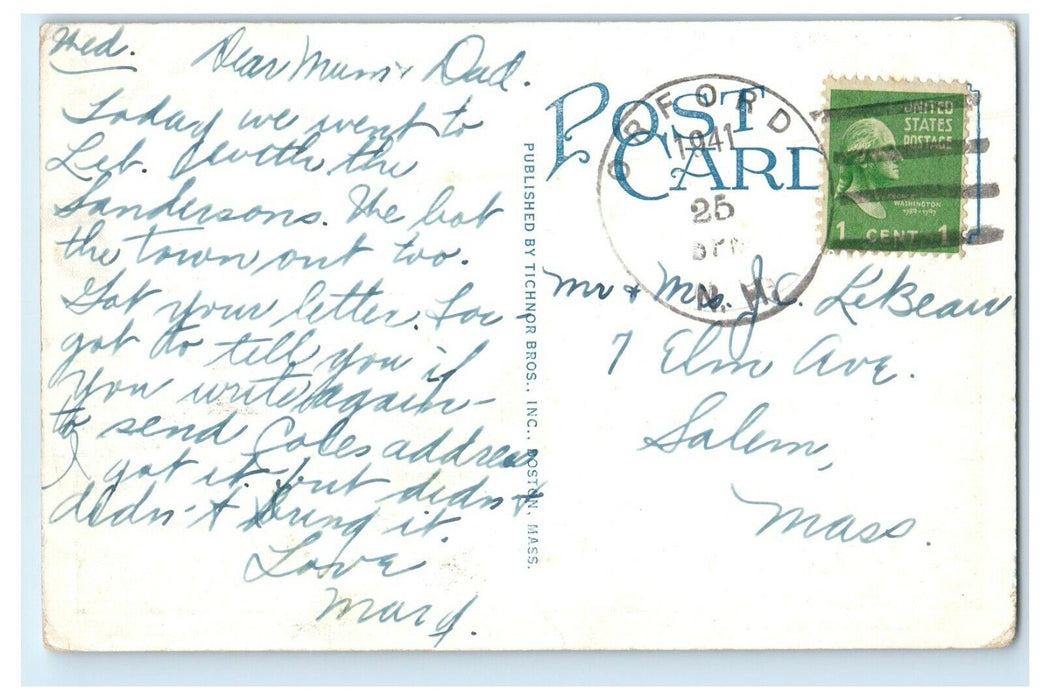 Wed.
Dear Mum & Dad.
Today we went to
Leb. with the
Sandersons. We bot
the town out too.
Got your letter. For
got to tell you if
you write again-
to send Coles address
I got it but didn't
didn't bring it.
Love
Marg.
PUBLISHED BY TICHNOR BROS., INC., BOSTON, MASS.
POST
CARD
ORFORD
1941
25
N.H.
UNITED
STATES
POSTAGE
WASHINGTON
1789-1797
1 CENT 1
Mr & Mrs. J.C. LeBeau
7 Elm Ave.
Salem,
Mass.